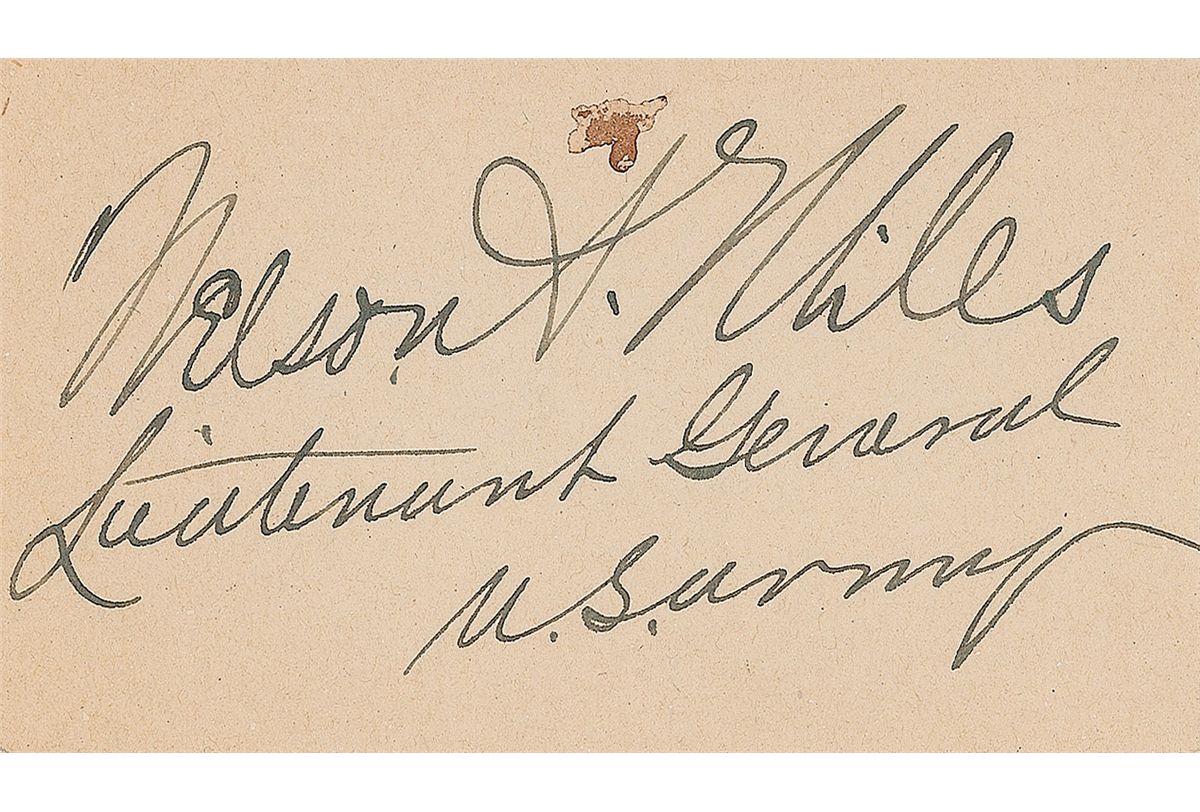 Nelson A. Miles
Lieutenant General
U.S. Army